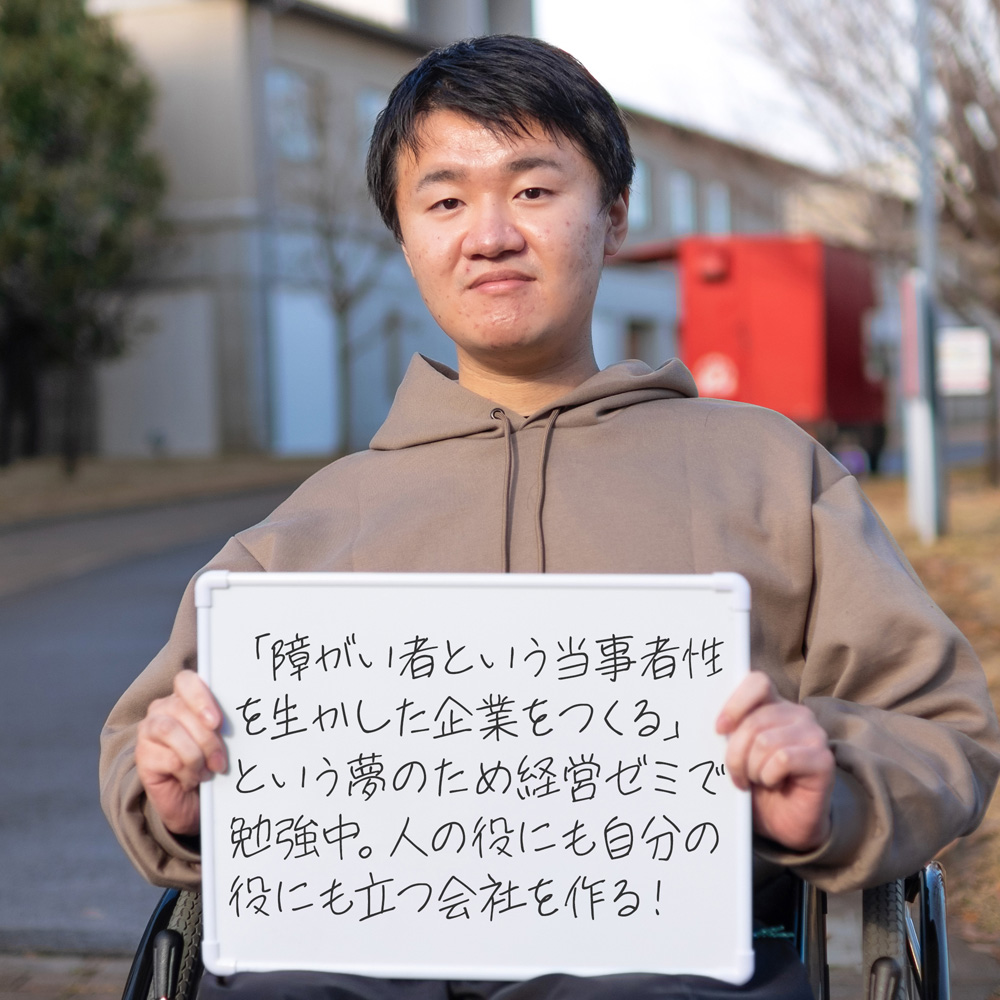 「障がい者という当事者性
を生かした企業をつくる」
という夢のため経営ゼミで
勉強中。人の役にも自分の
役にも立つ会社を作る！